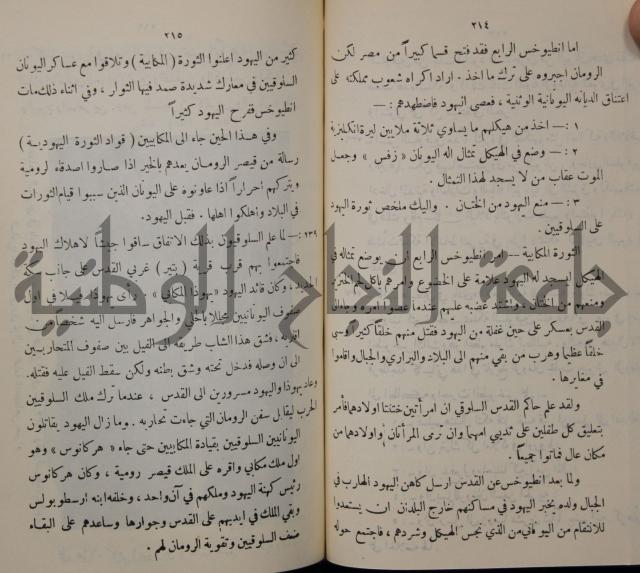 ٢١٤
اما انطيوخس الرابع فقد فتح قسما كبيراً من مصر لكن
الرومان اجبروه على ترك ما اخذ . اراد اكراه شعوب مملكته على
اعتناق الديانه اليونانية الوثنية ، فعصى اليهود فاضطهدهم : —
١ : — اخذ من هيكلهم ما يساوي ثلاثة ملايين ليرة انكليزية
٢ : — وضع في الهيكل تمثال اله اليونان « زفس » وجعل
الموت عقاب من لا يسجد لهذا التمثال .
٣ : — منع اليهود من الختان . واليك ملخص ثورة اليهود
على السلوقيين .
الثورة المكابية — امر انطيوخس الرابع ان يوضع تمثاله في
الهيكل ليسجد له اليهود علامة على الخضوع وامرهم باكل لحم الخنزير
ومنعهم من الختان ، واشتد غضبه عليهم عندما عصوا امره وجاء الى
القدس بعسكر على حين غفلة من اليهود فقتل منهم خلقاً كثيراً وسبى
خلقاً عظيما وهرب من بقي منهم الى البلاد والبراري والجبال واقاموا
في مغايرها .
ولقد علم حاكم القدس السلوقي ان امرأتين ختنتا اولادهما فأمر
بتعليق كل طفلين على ثديي امهما وان ترمى المرأتان واولادهما من
مكان عال فماتوا جميعاً .
ولما بعد انطيوخس عن القدس ارسل كاهن اليهود الهارب في
الجبال ولده يخبر اليهود في مساكنهم خارج البلدان ان يستعدوا
للانتقام من اليوناني الذي نجس الهيكل وشردهم ، فاجتمع حوله
٢١٥
كثير من اليهود اعلنوا الثورة ( المكابية ) وتلاقوا مع عساكر اليونان
السلوقيين في معارك شديدة صمد فيها الثوار ، وفي اثناء ذلك مات
انطيوخس ففرح اليهود كثيراً
وفي هذا الحين جاء الى المكابيين ( قواد الثورة اليهودية )
رسالة من قيصر الرومان يعدهم بالخير اذا صاروا اصدقاء لرومية
ويتركهم احراراً اذا عاونوه على اليونان الذين سببوا قيام الثورات
في البلاد واهلكوا اهلها . فقبل اليهود.
٢٣٩ : — لما علم السلوقيون بذلك الاتفاق ساقوا جيشاً لاهلاك اليهود
فاجتمعوا بهم قرب قرية ( بتير ) غربي القدس على جانب سكة
الحديد ، وكان قائد اليهود « يهوذا المكابي » . رأى يهوذا فيلا في اول
صفوف اليونانيين مجللا بالحلي والجواهر فارسل اليه شخصاً من
اقاربه ، فشق هذا الشاب طريقه الى الفيل بين صفوف المتحاربين
الى ان وصله فدخل تحته وشق بطنه ولكن سقط الفيل عليه فقتله.
وعاد يهوذا واليهود مسرورين الى القدس ، عندما ترك ملك السلوقيين
الحرب ليقابل سفن الرومان التي جاءت تحاربه . وما زال اليهود يقاتلون
اليونانيين السلوقيين بقيادة المكابيين حتى جاء « هركانوس » وهو
اول ملك مكابي واقره على الملك قيصر رومية ، وكان هركانوس
رئيس كهنة اليهود وملكهم في آن واحد ، وخلفه ابنه ارسطوبولس
وبقي الملك في ايديهم على القدس وجوارها وساعدهم على البقاء
ضعف السلوقيين وتقوية الرومان لهم .
جامعة النجاح الوطنية